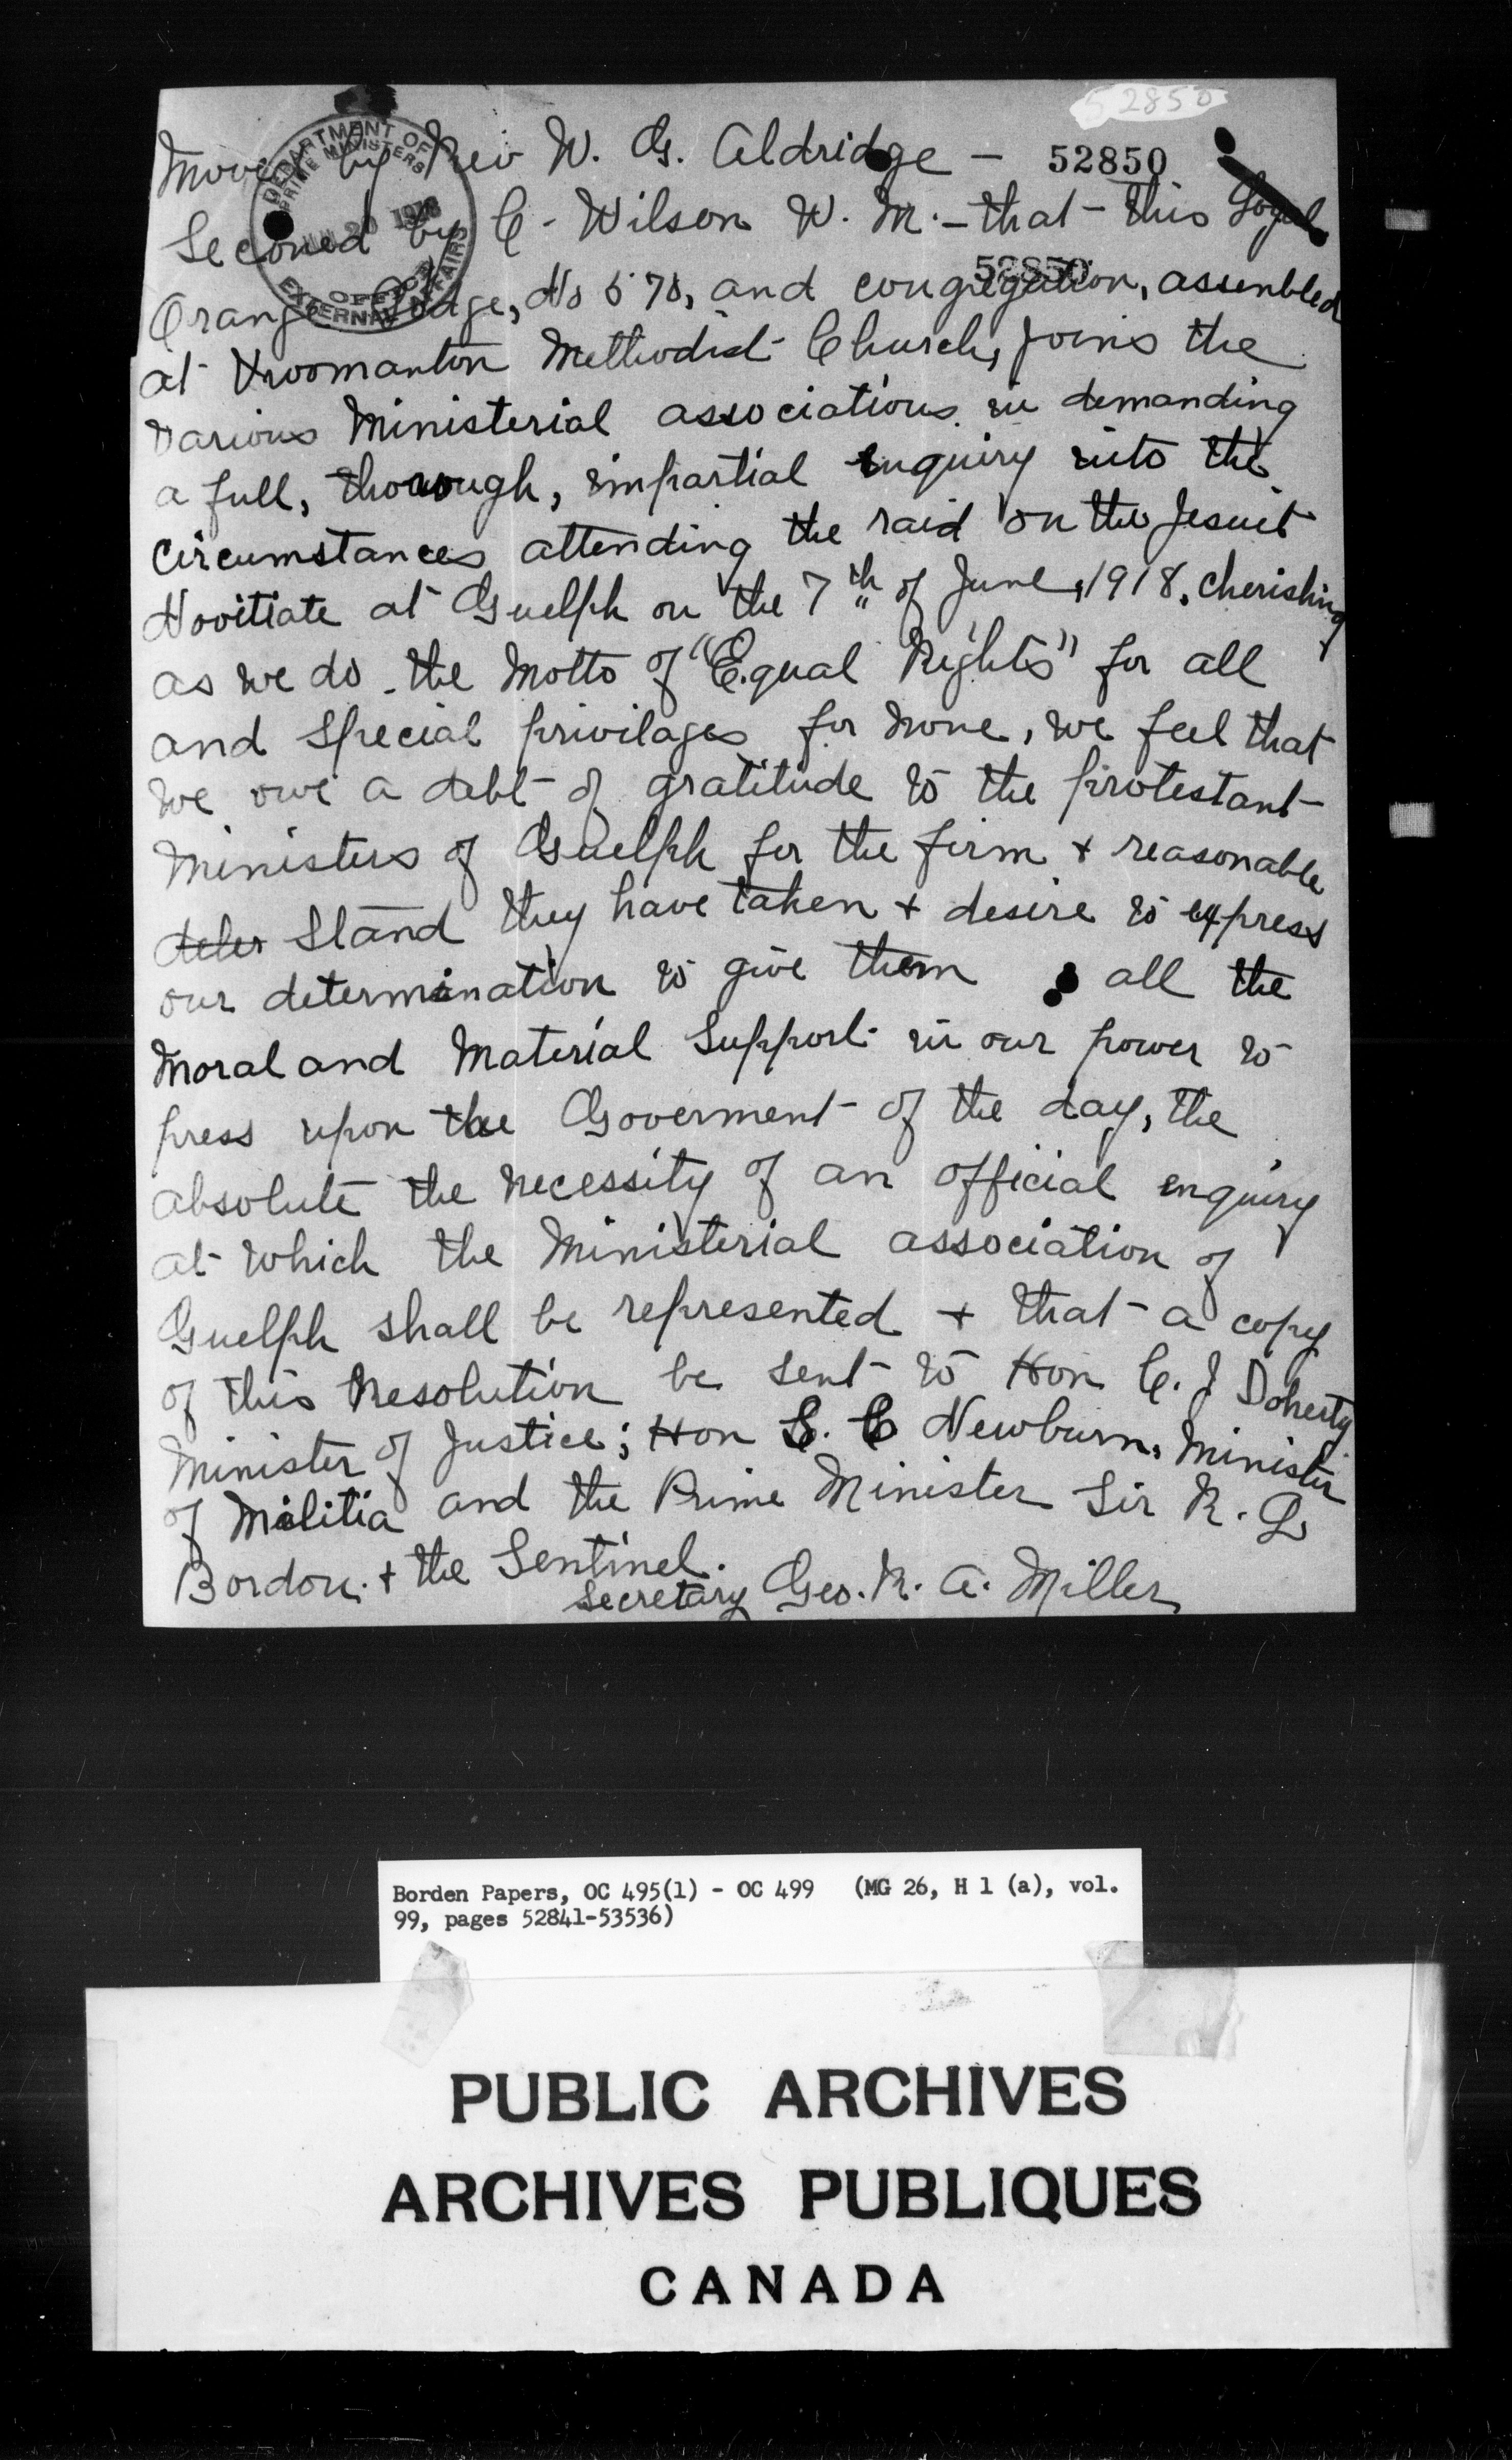 52850
Moved by Rev W. G. Aldridge – 52850
Seconed by C. Wilson W. M. – that this Loyal
52850
Orange Lodge, No 570, and congregation, assembled
at Vroomanton Methodist Church, joins the
various Ministerial associations in demanding
a full, thorough, impartial enquiry into the
circumstances attending the raid on the Jesuit
Novitiate at Guelph on the 7th of June, 1918. Cherishing
as we do the Motto of "Equal Rights" for all
and special privilages for none, we feel that
we owe a debt of gratitude to the protestant
Ministers of Guelph for the firm + reasonable
deter stand they have taken + desire to express
our determination to give them all the
Moral and Material support in our power to
press upon the Goverment of the day, the
absolute the necessity of an official enquiry
at which the Ministerial association of
Guelph shall be represented + that a copy
of this Resolution be sent to Hon C. J Doherty
Minister of Justice; Hon S. C Newburn, Minister
of Militia and the Prime Minister Sir R. L
Bordon. + the Sentinel.
Secretary Geo. R. A. Miller
DEPARTMENT OF
PRIME MINISTERS
20 1918
OFFICE
EXTERNAL AFFAIRS
Borden Papers, OC 495(1) - OC 499 (MG 26, H 1 (a), vol.
99, pages 52841-53536)
PUBLIC ARCHIVES
ARCHIVES PUBLIQUES
CANADA